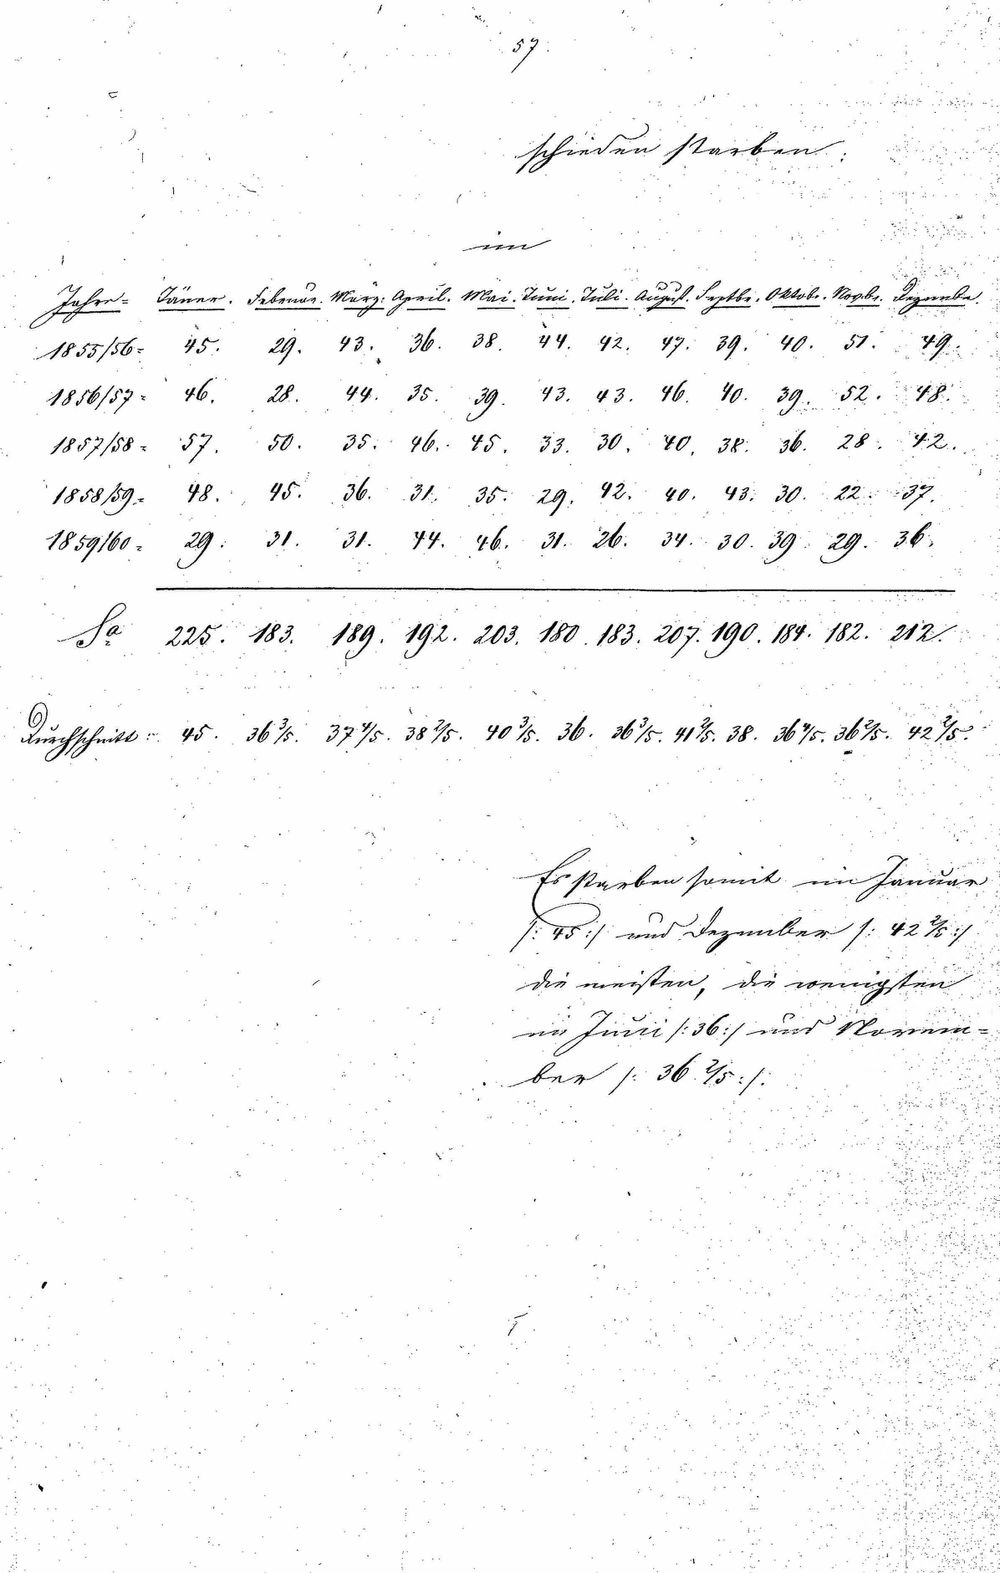 57.
schieden starben:
im
Jahre= Jäner. Februar. März: April. Mai. Juni. Juli. August. Septbr. Oktobr. Novbr. Dezembe.
1855/56= 45. 29. 43. 36. 38. 44. 42. 47. 39. 40. 51. 49.
1856/57= 46. 28. 44. 35. 39. 43. 43. 46. 40. 39. 52. 48.
1857/58= 57. 50. 35. 46. 45. 33. 30. 40. 38. 36. 28. 42.
1858/59= 48. 45. 36. 31. 35. 29. 42. 40. 43. 30. 22. 37.
1859/60= 29. 31. 31. 44. 46. 31. 26. 34. 30. 39. 29. 36.
Sa 225. 183. 189. 192. 203. 180. 183. 207. 190. 184. 182. 212.
Durchschnitt: 45. 36 3/5. 37 4/5. 38 2/5. 40 3/5. 36. 36 3/5. 41 2/5. 38. 36 4/5. 36 2/5. 42 2/5.
Es starben somit im Januar
/: 45 :/ und Dezember /: 42 2/5 :/
die meisten, die wenigsten
im Juni /: 36 :/ und Novem=
ber /: 36 2/5 :/.